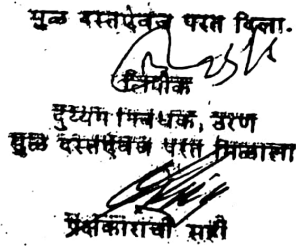 मुळ दस्तऐवज परत दिला.
लिपीक
दुय्यम निबंधक, उरण
मुळ दस्तऐवज परत मिळाला
पक्षकाराची सही